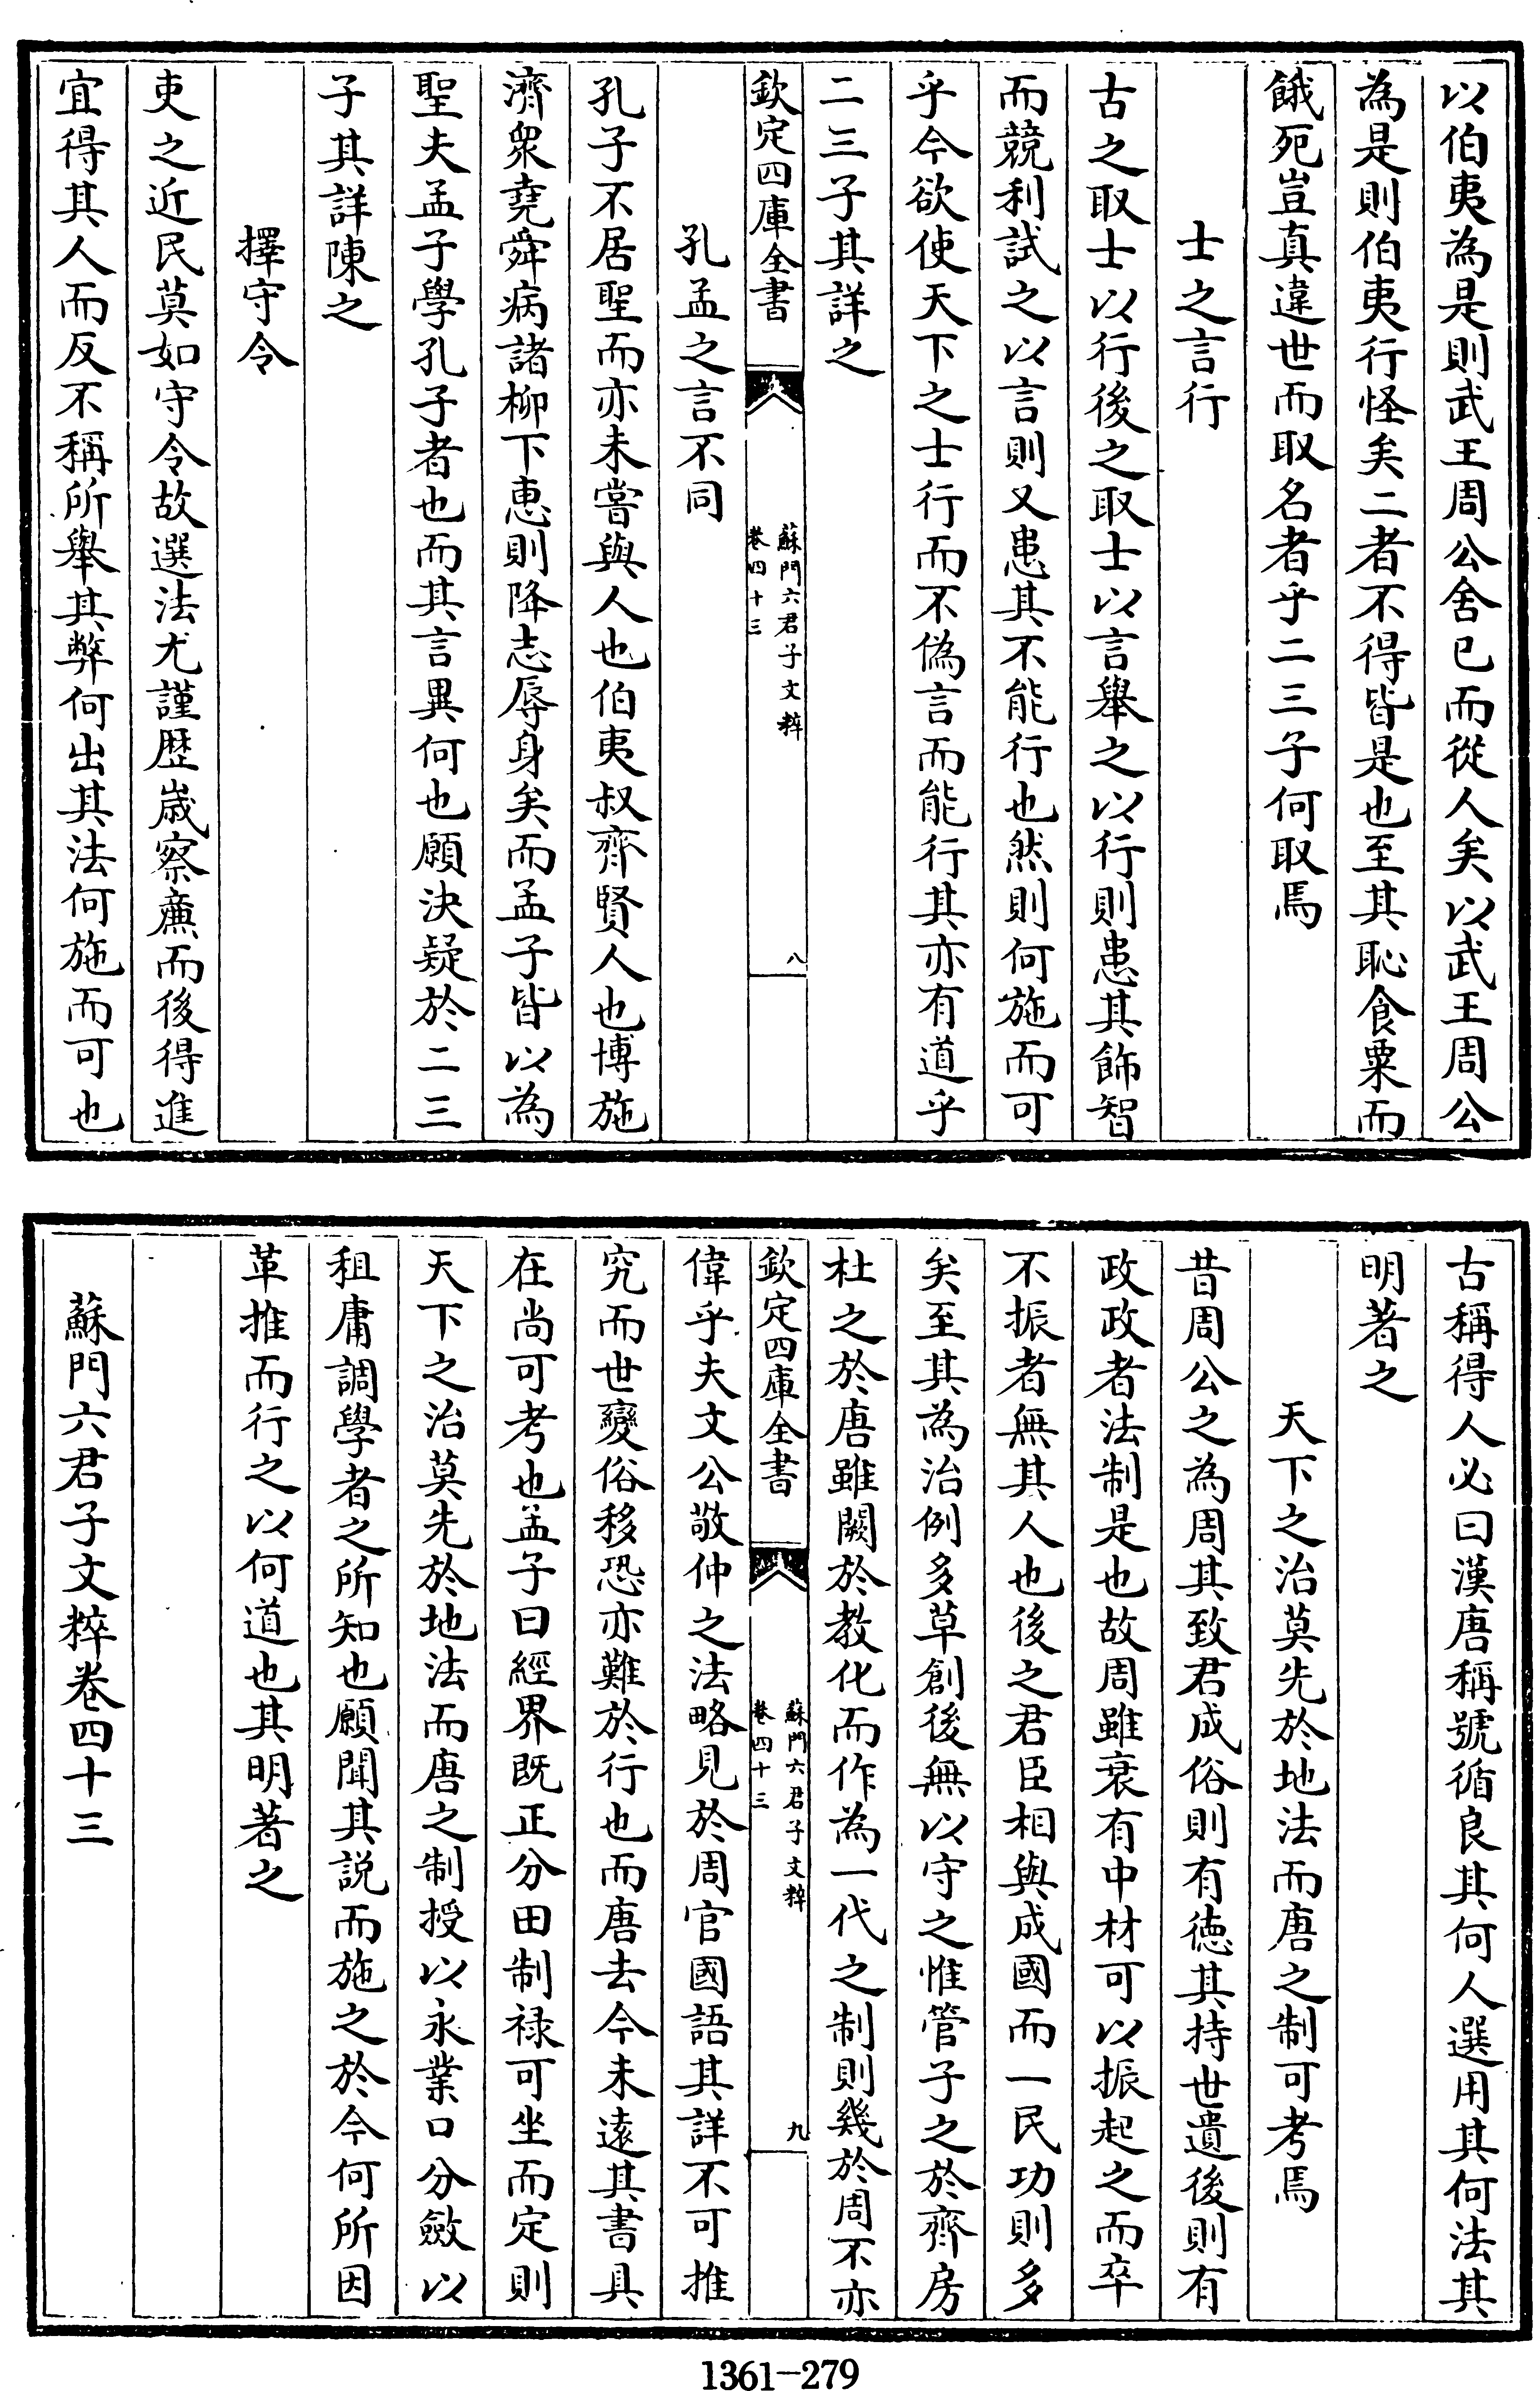 以伯夷為是則武王周公舍已而從人矣以武王周公
為是則伯夷行怪矣二者不得皆是也至其恥食粟而
餓死豈真違世而取名者乎二三子何取焉
士之言行
古之取士以行後之取士以言舉之以行則患其飾智
而競利試之以言則又患其不能行也然則何施而可
乎今欲使天下之士行而不偽言而能行其亦有道乎
二三子其詳之
欽定四庫全書
蘇門六君子文粹
卷四十三
八
孔孟之言不同
孔子不居聖而亦未嘗與人也伯夷叔齊賢人也博施
濟衆堯舜病諸柳下惠則降志辱身矣而孟子皆以為
聖夫孟子學孔子者也而其言異何也願決疑於二三
子其詳陳之
擇守令
吏之近民莫如守令故選法尤謹歴歲察亷而後得進
宜得其人而反不稱所舉其弊何出其法何施而可也
古稱得人必曰漢唐稱號循良其何人選用其何法其
明著之
天下之治莫先於地法而唐之制可考焉
昔周公之為周其致君成俗則有徳其持世遺後則有
政政者法制是也故周雖衰有中材可以振起之而卒
不振者無其人也後之君臣相與成國而一民功則多
矣至其為治例多草創後無以守之惟管子之於齊房
杜之於唐雖闕於教化而作為一代之制則幾於周不亦
欽定四庫全書
蘇門六君子文粹
卷四十三
九
偉乎夫文公敬仲之法略見於周官國語其詳不可推
究而世變俗移恐亦難於行也而唐去今未遠其書具
在尚可考也孟子曰經界既正分田制禄可坐而定則
天下之治莫先於地法而唐之制授以永業口分斂以
租庸調學者之所知也願聞其説而施之於今何所因
革推而行之以何道也其明著之
蘇門六君子文粹卷四十三
1361-279